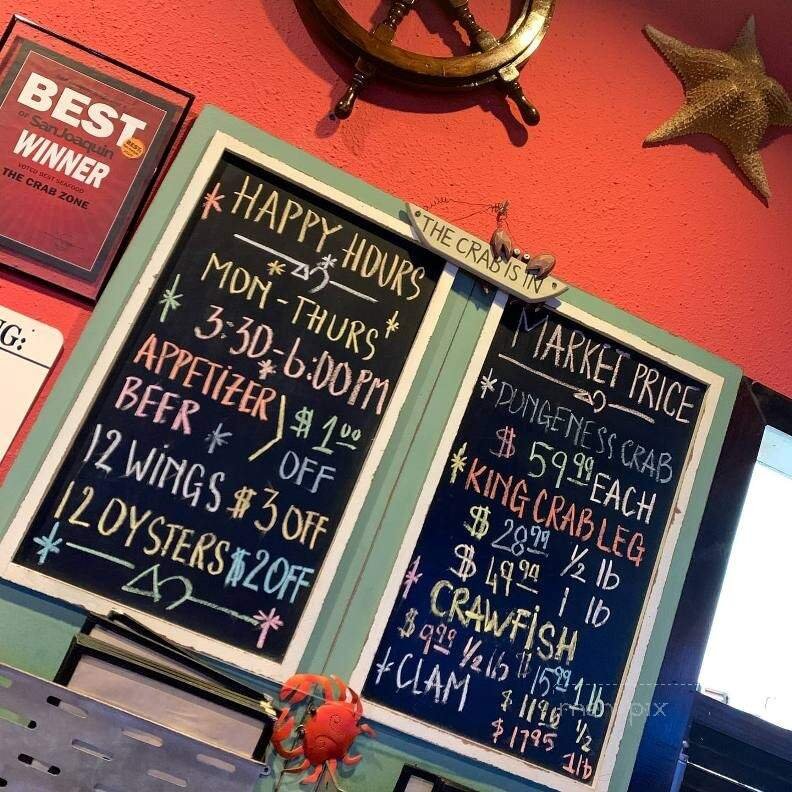 BEST
OF San Joaquin
WINNER
VOTED BEST SEAFOOD
THE CRAB ZONE
G:
THE CRAB IS IN
HAPPY HOURS
MON-THURS
3:30-6:00PM
APPETIZER
BEER
$1.00
OFF
12 WINGS $3 OFF
12 OYSTERS $2 OFF
MARKET PRICE
DUNGENESS CRAB
$59.99 EACH
KING CRAB LEG
$28.99 1/2 lb
$49.99 1 lb
CRAWFISH
$9.99 1/2 lb $15.99 1 lb
CLAM
$11.95 1/2
$17.95 1 lb